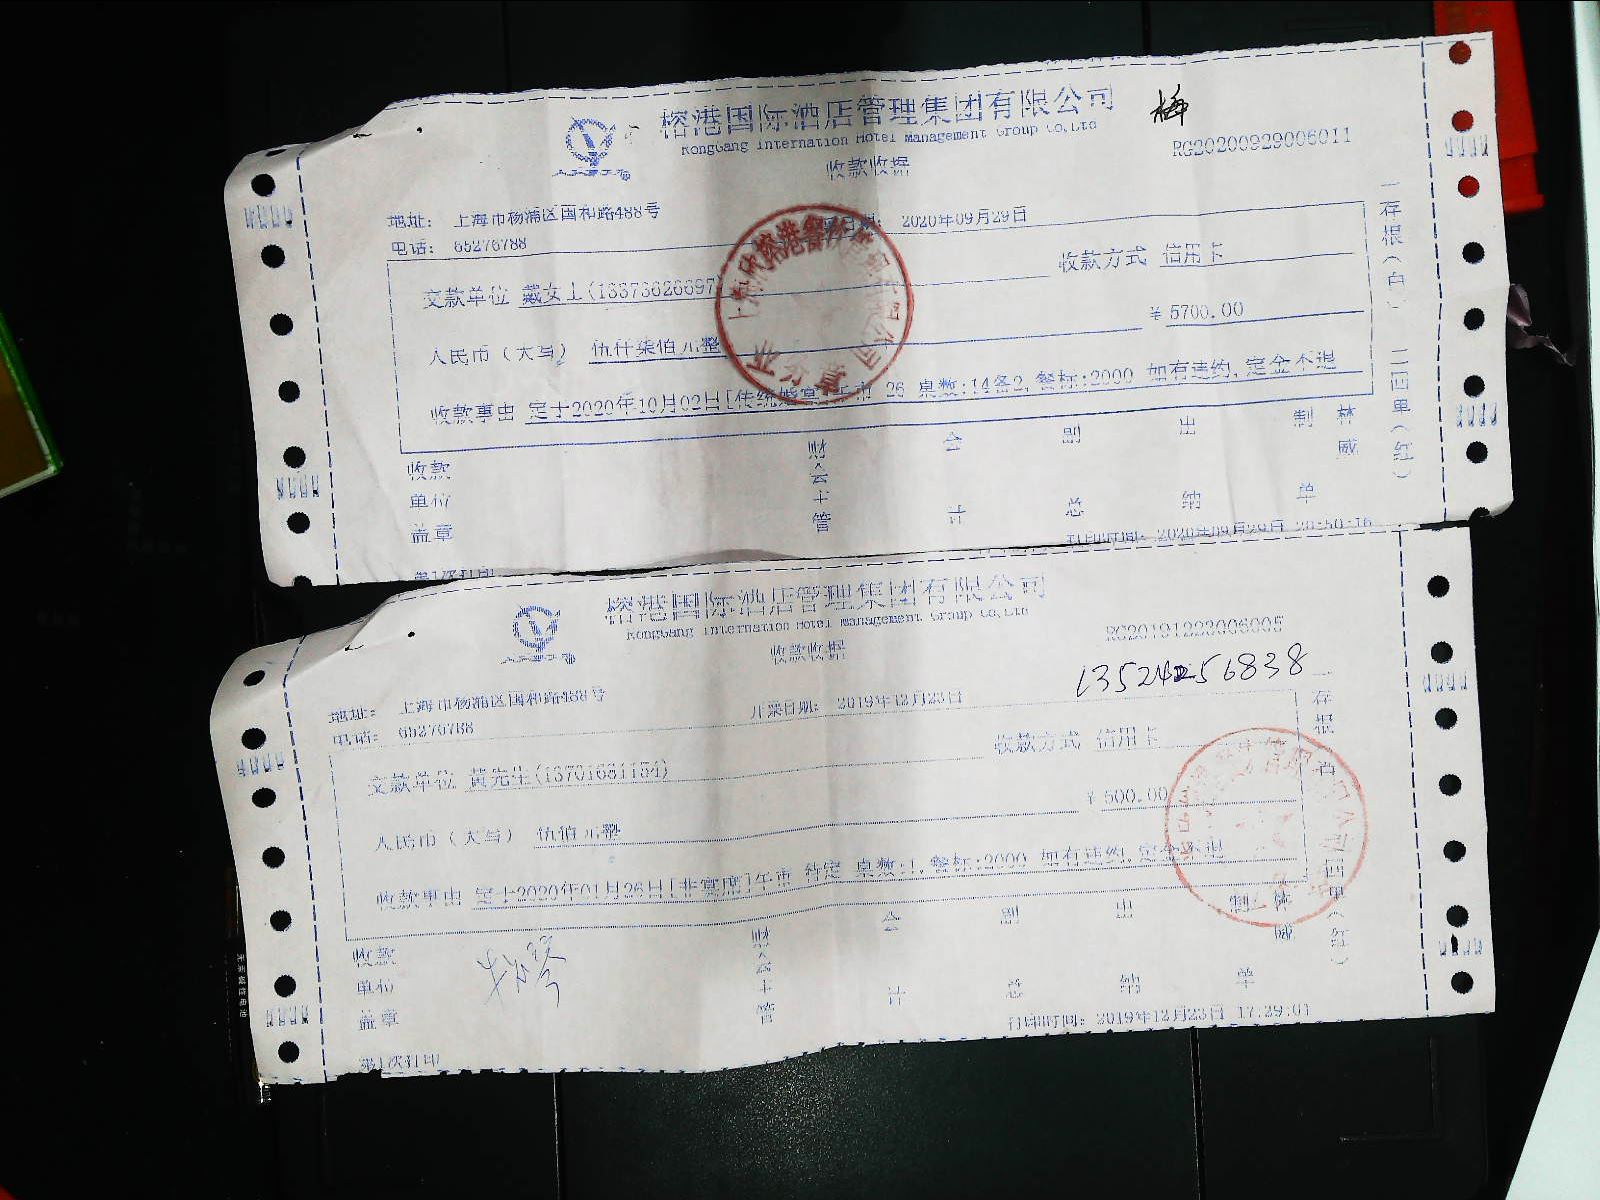 榕港国际酒店管理集团有限公司
梅
RongGang Internation Hotel Management Group Co,Ltd
RG20200929006011
收款收据
地址: 上海市杨浦区国和路488号
日期: 2020年09月29日
电话: 65276788
收款方式 信用卡
交款单位 戴女士(13373626697
¥ 5700.00
人民币(大写) 伍仟柒佰元整
收款事由 定于2020年10月02日[传统婚宴]午市 26 桌数:14备2,餐标:2000 如有违约,定金不退
一存根(白) 二四单(红)
收款单位盖章
财会主管
会计
副总
出纳
制单
林威
打印时间: 2020年09月29日 20:50:16
第1次打印
榕港国际酒店管理集团有限公司
RongGang Internation Hotel Management Group Co,Ltd
RG20191223006005
收款收据
13524256838
地址: 上海市杨浦区国和路488号
开票日期: 2019年12月23日
电话: 65276788
收款方式 信用卡
交款单位 黄先生(13701681154)
¥ 500.00
人民币(大写) 伍佰元整
收款事由 定于2020年01月26日[非宴席]午市 待定 桌数:1,餐标:2000 如有违约,定金不退
收款单位盖章
财会主管
会计
副总
出纳
制单
打印时间: 2019年12月23日 17:29:01
第1次打印